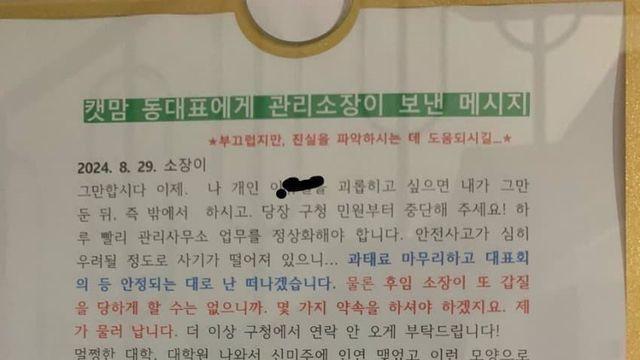 캣맘 동대표에게 관리소장이 보낸 메시지
★부끄럽지만, 진실을 파악하시는 데 도움되시길...★
2024. 8. 29. 소장이
그만합시다 이제. 나 개인 을 괴롭히고 싶으면 내가 그만
둔 뒤, 즉 밖에서 하시고. 당장 구청 민원부터 중단해 주세요! 하
루 빨리 관리사무소 업무를 정상화해야 합니다. 안전사고가 심히
우려될 정도로 사기가 떨어져 있으니... 과태료 마무리하고 대표회
의 등 안정되는 대로 난 떠나겠습니다. 물론 후임 소장이 또 갑질
을 당하게 할 수는 없으니까. 몇 가지 약속을 하셔야 하겠지요. 제
가 물러 납니다. 더 이상 구청에서 연락 안 오게 부탁드립니다!
멀쩡한 대학, 대학원 나와서 신미주에 인연 맺었고 이런 모양으로